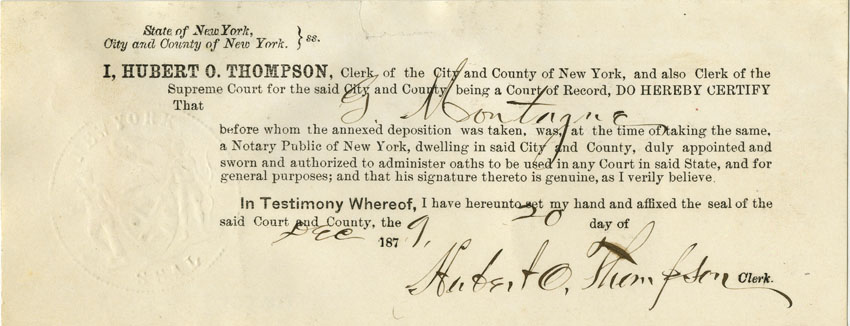 State of New York,
City and County of New York. } ss.
I, HUBERT O. THOMPSON, Clerk of the City and County of New York, and also Clerk of the
Supreme Court for the said City and County being a Court of Record, DO HEREBY CERTIFY
That G. Montague
before whom the annexed deposition was taken, was, at the time of taking the same,
a Notary Public of New York, dwelling in said City and County, duly appointed and
sworn and authorized to administer oaths to be used in any Court in said State, and for
general purposes; and that his signature thereto is genuine, as I verily believe.
In Testimony Whereof, I have hereunto set my hand and affixed the seal of the
said Court and County, the 20 day of
Dec 1879,
Hubert O. Thompson Clerk.
NEW YORK
SEAL